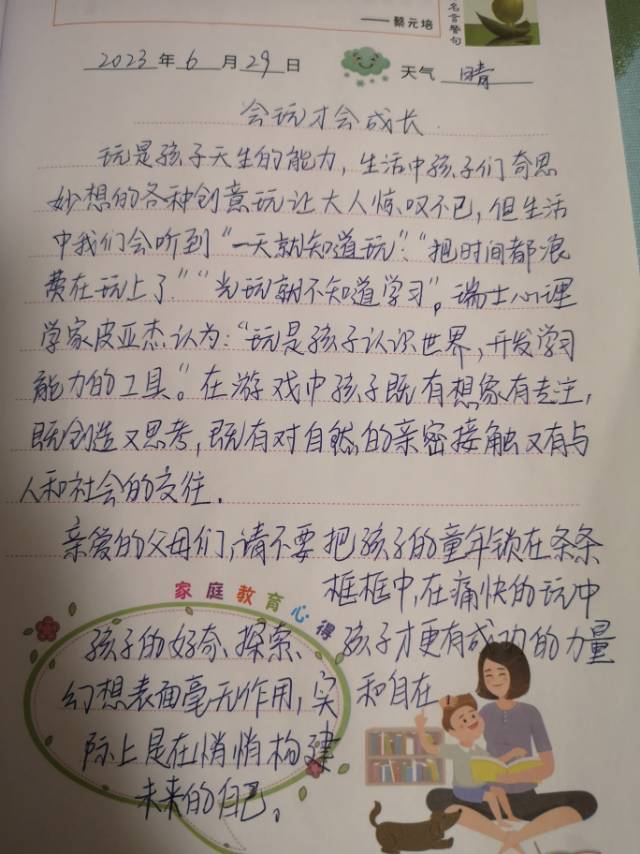 名言警句
——蔡元培
2023年6月29日 天气 晴
会玩才会成长
玩是孩子天生的能力，生活中孩子们奇思
妙想的各种创意玩让大人惊叹不已，但生活
中我们会听到“一天就知道玩”“把时间都浪
费在玩上了”“光玩就不知道学习”。瑞士心理
学家皮亚杰认为：“玩是孩子认识世界，开发学习
能力的工具”。在游戏中孩子既有想象有专注，
既创造又思考，既有对自然的亲密接触又有与
人和社会的交往。
亲爱的父母们，请不要把孩子的童年锁在条条
框框中，在痛快的玩中
孩子才更有成功的力量
和自在。
家庭教育心得
孩子的好奇、探索、
幻想表面毫无作用，实
际上是在悄悄构建
未来的自己。